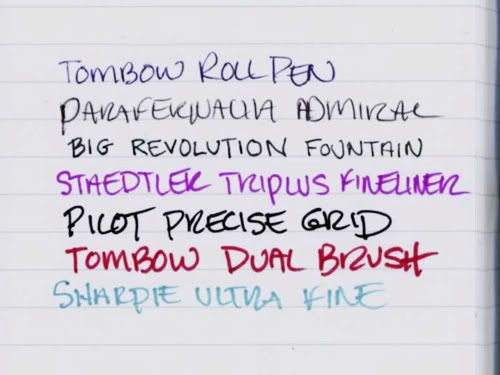 TOMBOW ROLL PEN
PARAFERNALIA ADMIRAL
BIG REVOLUTION FOUNTAIN
STAEDTLER TRIPLUS FINELINER
PILOT PRECISE GRID
TOMBOW DUAL BRUSH
SHARPIE ULTRA FINE